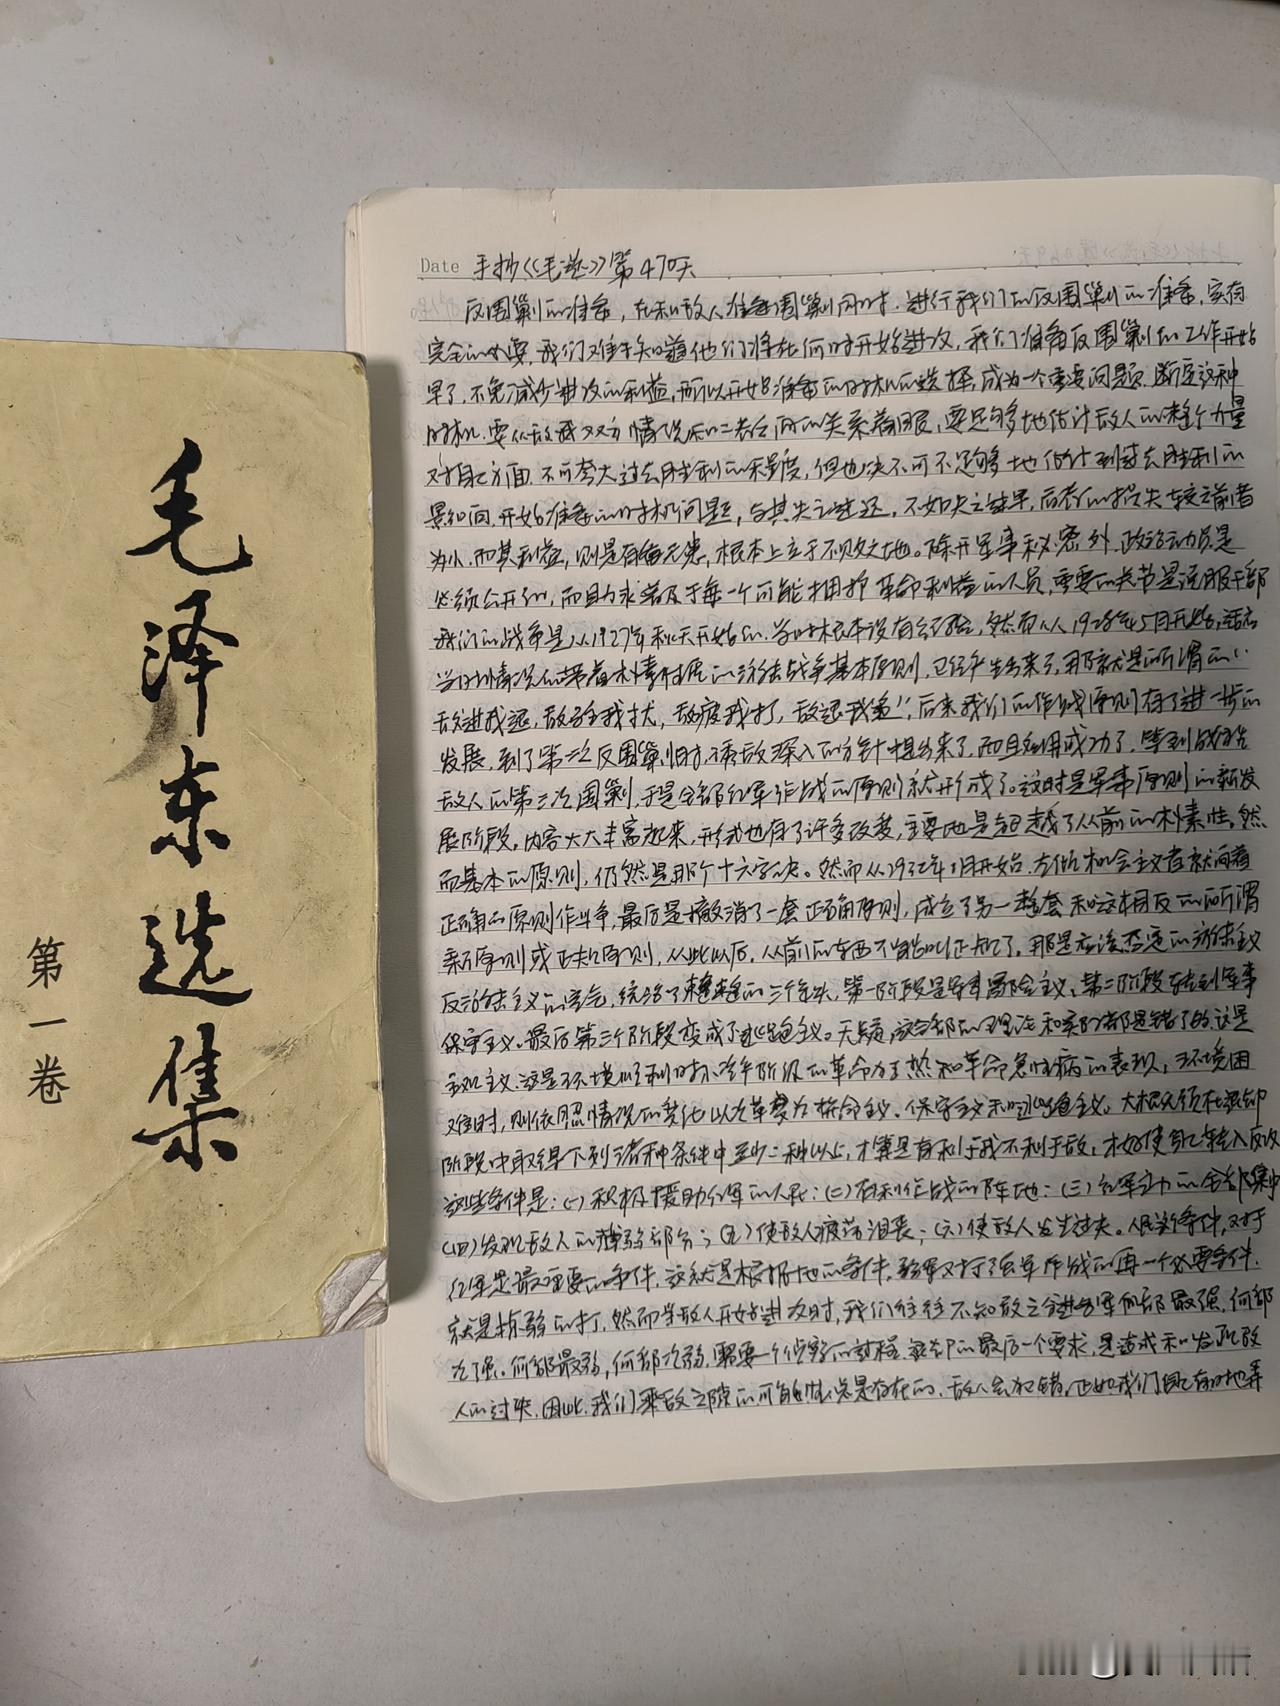 毛泽东选集
第一卷
Date 手抄《毛选》第470天
反围剿的准备，在和敌人准备围剿同时，进行我们的反围剿的准备，实有
完全的必要，我们难于知道他们将在何时开始进攻，我们准备反围剿的工作开始
早了，不免减少进攻的利益，所以开始准备的时机的选择，成为一个重要问题，断定这种
时机，要从敌我双方情况和二者之间的关系着眼，要足够地估计敌人的整个力量
对自己方面，不可夸大过去胜利的程度，但也决不可不足够地估计到过去胜利的
影响，开始准备的时机问题，与其失之过迟，不如失之过早，后者的损失较之前者
为小，而其利益，则是有备无患，根本上立于不败之地。除开军事秘密外，政治动员是
必须公开的，而且力求普及于每一个可能拥护革命利益的人员，重要的关节是说服干部
我们的战争是从1927年秋天开始的，当时根本没有经验，然而从1928年5月开始，适应
当时情况的带着朴素性质的游击战争基本原则，已经产生出来了，那就是所谓的“
敌进我退，敌驻我扰，敌疲我打，敌退我追”，后来我们的作战原则有了进一步的
发展，到了第一次反围剿时，诱敌深入的方针提出来了，而且应用成功了，等到战胜
敌人的第三次围剿，于是全部红军作战的原则就形成了。这时是军事原则的新发
展阶段，内容大大丰富起来，形式也有了许多改变，主要地是超越了从前的朴素性，然
而基本的原则，仍然是那个十六字诀。然而从1932年1月开始，左倾机会主义者就向着
正确的原则作斗争，最后是撤消了一套正确原则，成立了另一整套和这相反的所谓
新原则或正规原则，从此以后，从前的东西不能叫正规了，那是应该否定的游击主义
反游击主义的空气，统治了整整的三个年头，第一阶段是军事冒险主义，第二阶段转到军事
保守主义，最后第三个阶段变成了逃跑主义。无疑，这全部的理论和实际都是错了的，这是
主观主义，这是环境顺利时小资产阶级的革命狂热和革命急性病的表现，环境困
难时，则依照情况的变化以次革变为拚命主义、保守主义和逃跑主义。大概无须在退却
阶段中取得下列诸种条件中至少二种以上，才算是有利于我不利于敌，才好使自己转入反攻
这些条件是：（一）积极援助红军的人民；（二）有利作战的阵地；（三）红军主力的全部集中
（四）发现敌人的薄弱部分；（五）使敌人疲劳沮丧；（六）使敌人发生过失。人民这个条件，对于
红军是最重要的条件，这就是根据地的条件，弱军对于强军作战的再一个必要条件，
就是拣弱的打，然而当敌人开始进攻时，我们往往不知敌之分进各军何部最强，何部
次强。何部最弱，何部次弱，需要一个侦察的过程，退却的最后一个要求，是造成和发现敌
人的过失，因此，我们乘敌之隙的可能性总是存在的，敌人会犯错，正如我们自己有时也弄